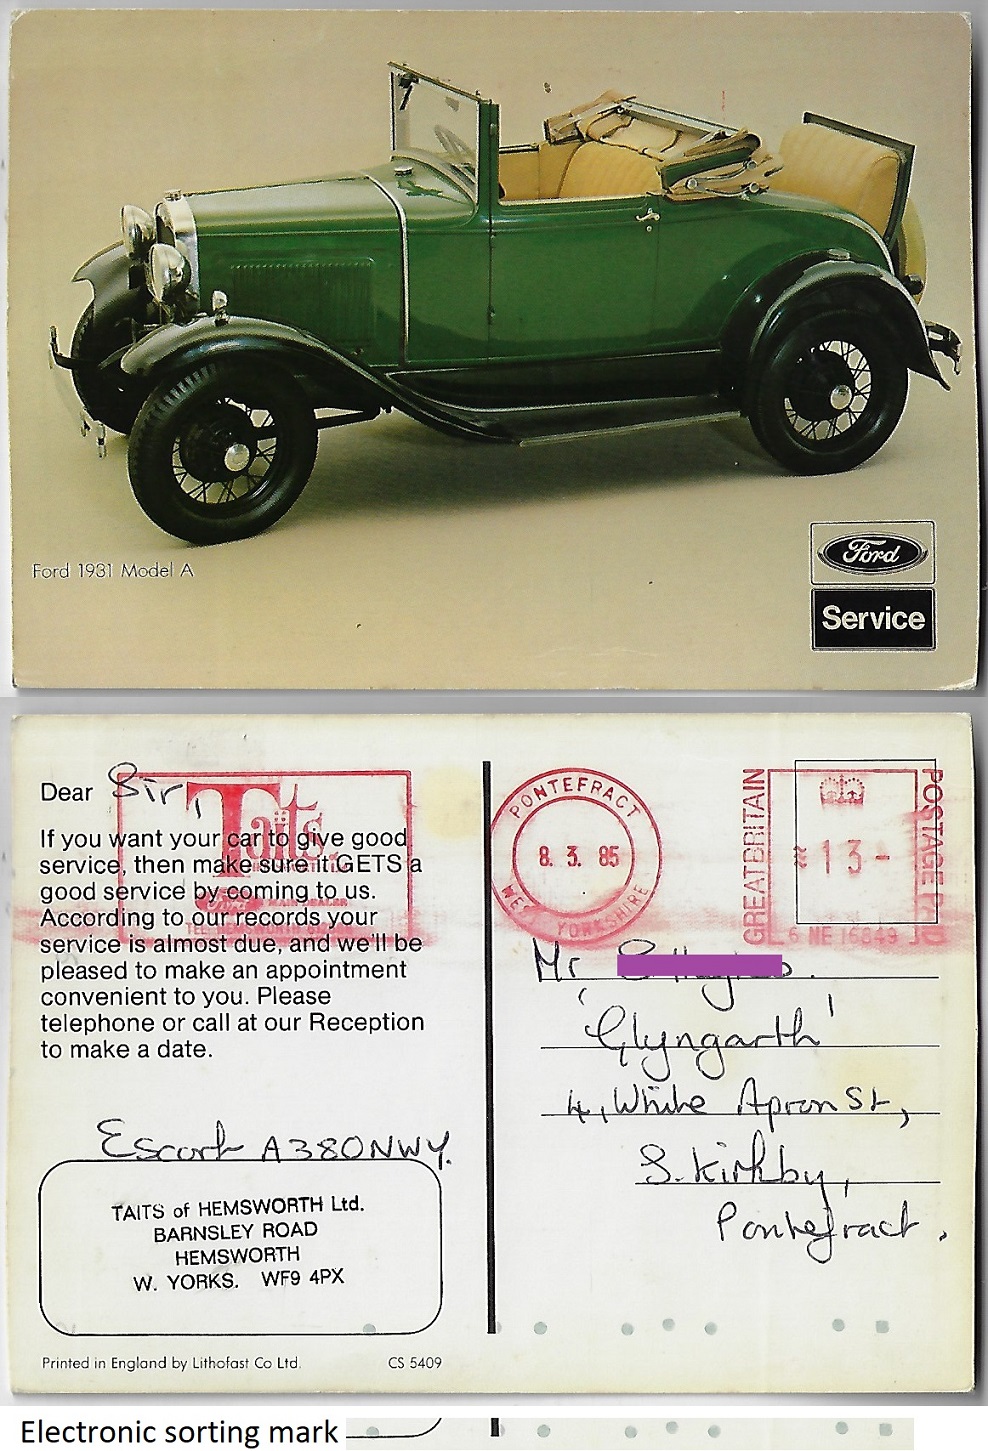 Ford 1931 Model A
Ford
Service
Dear Sir,
If you want your car to give good
service, then make sure it GETS a
good service by coming to us.
According to our records your
service is almost due, and we'll be
pleased to make an appointment
convenient to you. Please
telephone or call at our Reception
to make a date.
Escort A380NWY.
TAITS of HEMSWORTH Ltd.
BARNSLEY ROAD
HEMSWORTH
W. YORKS. WF9 4PX
Printed in England by Lithofast Co Ltd.
CS 5409
Taits
Ford MAIN DEALER
TEL HEMSWORTH
PONTEFRACT
8. 3. 85
WEST YORKSHIRE
GREAT BRITAIN
13 -
POSTAGE PAID
Mr
'Glyngarth'
4, White Apron St,
S. Kirkby,
Pontefract.
Electronic sorting mark